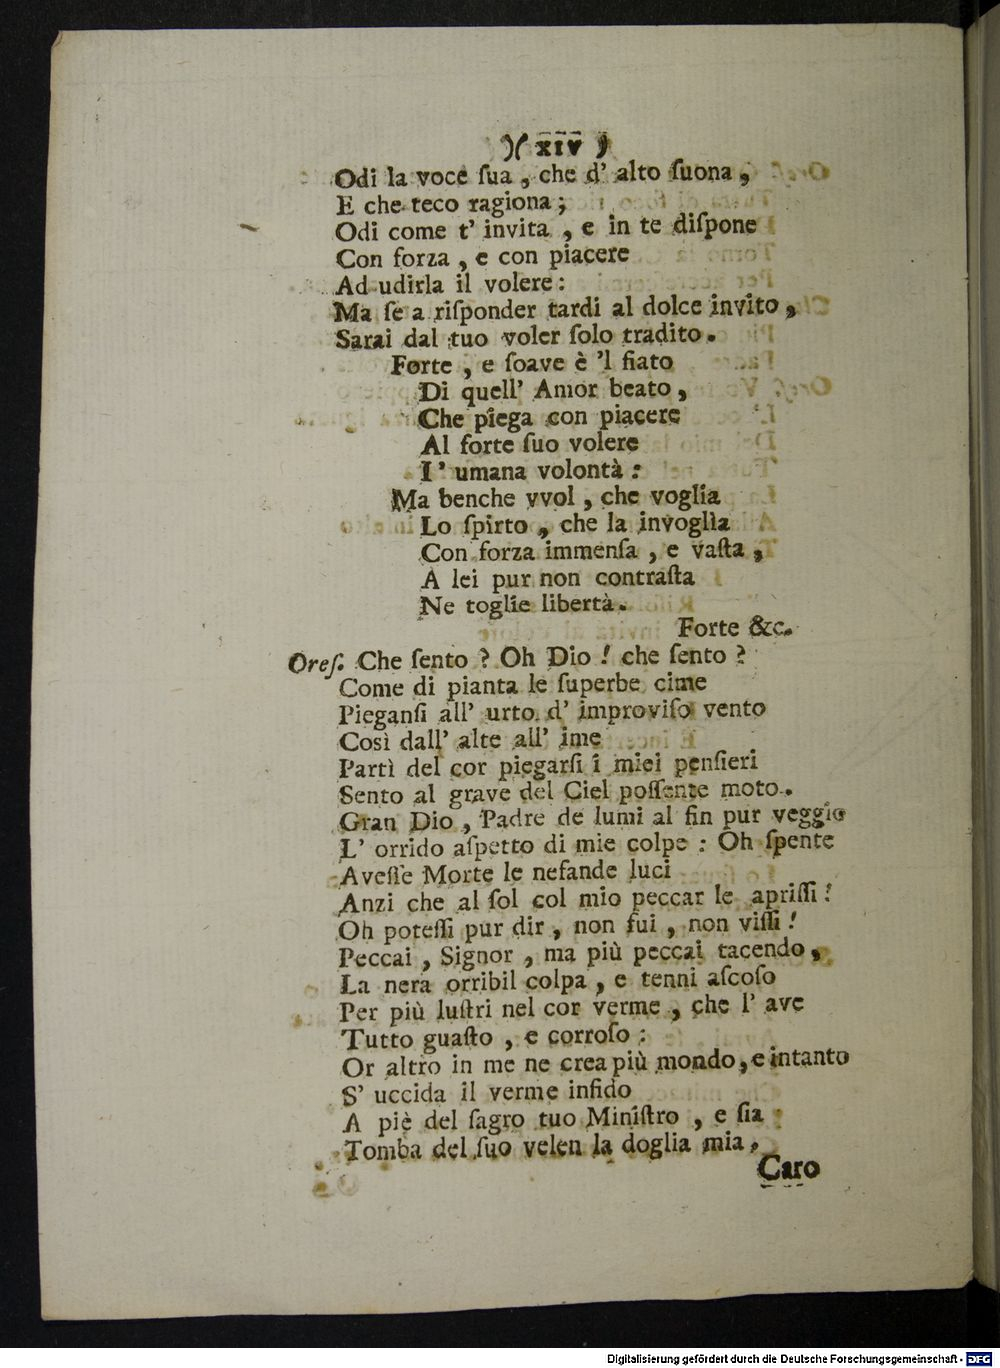 )( XIV )
Odi la voce ſua , che d' alto ſuona ,
E che teco ragiona ;
Odi come t' invita , e in te diſpone
Con forza , e con piacere
Ad udirla il volere :
Ma ſe a riſponder tardi al dolce invito ,
Sarai dal tuo voler ſolo tradito .
Forte , e ſoave è 'l fiato
Di quell' Amor beato ,
Che piega con piacere
Al forte ſuo volere
I' umana volontà :
Ma benche vvol , che voglia
Lo ſpirto , che la invoglia
Con forza immenſa , e vaſta ,
A lei pur non contraſta
Ne toglie libertà .
Forte &c.
Oreſ. Che ſento ? Oh Dio ! che ſento ?
Come di pianta le ſuperbe cime
Pieganſi all' urto d' improviſo vento
Così dall' alte all' ime
Partì del cor piegarſi i miei penſieri
Sento al grave del Ciel poſſente moto .
Gran Dio , Padre de lumi al fin pur veggio
L' orrido aſpetto di mie colpe : Oh ſpente
Aveſſe Morte le nefande luci
Anzi che al ſol col mio peccar le apriſſi !
Oh poteſſi pur dir , non fui , non viſſi !
Peccai , Signor , ma più peccai tacendo ,
La nera orribil colpa , e tenni aſcoſo
Per più luſtri nel cor verme , che l' ave
Tutto guaſto , e corroſo :
Or altro in me ne crea più mondo , e intanto
S' uccida il verme infido
A piè del ſagro tuo Miniſtro , e ſia
Tomba del ſuo velen la doglia mia .
Caro
Digitalisierung gefördert durch die Deutsche Forschungsgemeinschaft - DFG